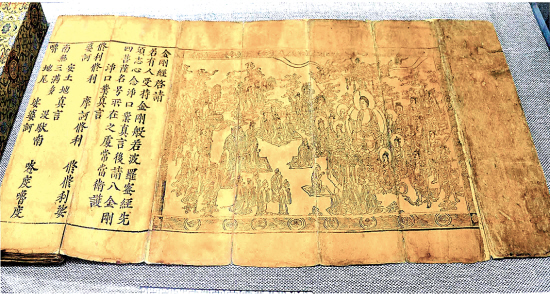 金剛經啓請
若有人受持金剛般若波羅蜜經先
須志心念淨口業真言後請八金剛
四菩薩名号所在之處常當衛護
淨口業真言
脩利脩利 摩訶脩利 脩脩利娑
婆訶
安土地真言
南無三滿多 沒馱喃 唵度嚕度
嚕 地尾 娑婆訶